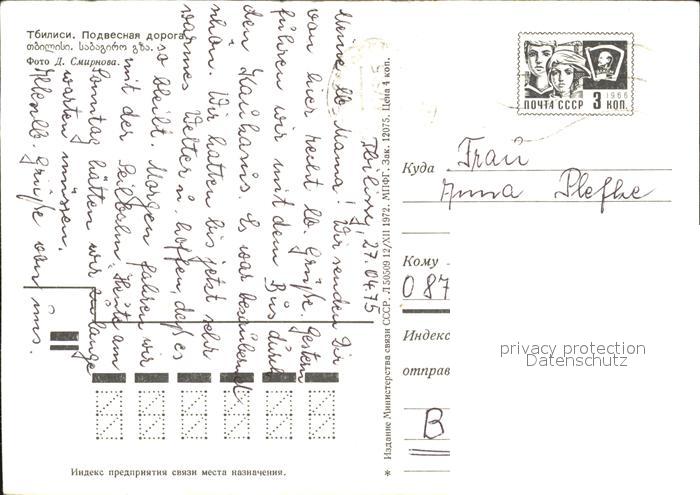 Тбилиси. Подвесная дорога.
თბილისი. საბაგირო გზა.
Фото Д. Смирнова.
Tbilissi, 27.04.75
Meine lb. Mama! Wir senden Dir
von hier recht lb. Grüße. Gestern
fuhren wir mit dem Bus durch
den Kaukasus. Es war bezaubernd
schön. Wir hatten bis jetzt sehr
warmes Wetter u. hoffen, daß es
so bleibt. Morgen fahren wir
mit der Seilbahn. Heute am
Sonntag hätten wir zu lange
warten müssen.
Grüße von uns.
Издание Министерства связи СССР. Л 50509 12/XII 1972. МПФГ. Зак. 12075. Цена 4 коп.
1966
ПОЧТА СССР 3 КОП.
Куда Frau
Anna Plefke
Кому
087
Индекс
отправ
B
privacy protection
Datenschutz
Индекс предприятия связи места назначения.